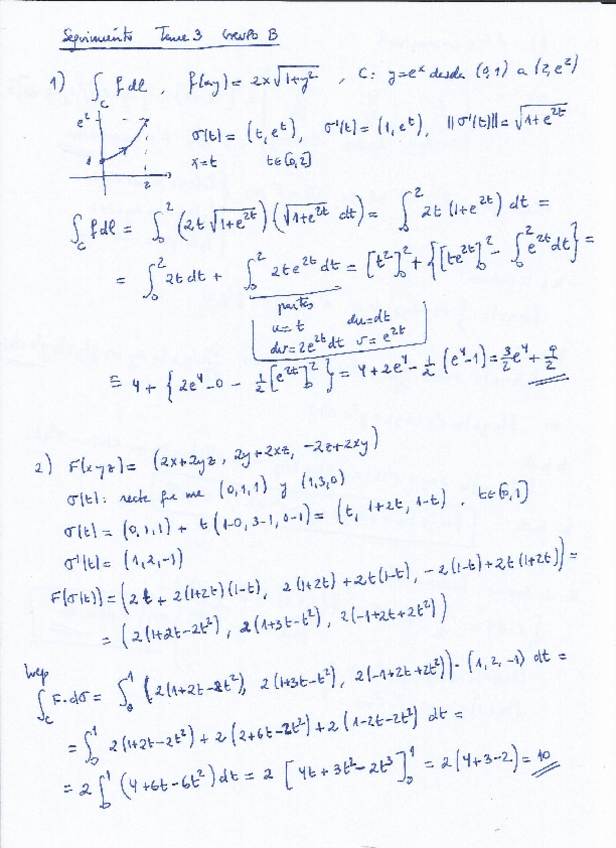 Seguimiento Tema 3 GRUPO B
1) ∫_C f dl , f(x,y) = 2x√(1+y²) , C: y=e^x desde (0,1) a (2,e²)
e²
1
2
σ(t) = (t, e^t), σ'(t) = (1, e^t), ||σ'(t)|| = √(1+e^{2t})
x=t t∈[0,2]
∫_C f dl = ∫_0^2 (2t √(1+e^{2t})) (√(1+e^{2t}) dt) = ∫_0^2 2t (1+e^{2t}) dt =
= ∫_0^2 2t dt + ∫_0^2 2t e^{2t} dt = [t²]_0^2 + {[t e^{2t}]_0^2 - ∫_0^2 e^{2t} dt} =
partes
u=t du=dt
dv=2e^{2t} dt v=e^{2t}
= 4 + {2e⁴-0 - ½ [e^{2t}]_0^2} = 4+2e⁴-½ (e⁴-1) = 3/2 e⁴ + 9/2
2) F(x,y,z) = (2x+2yz, 2y+2xz, -2z+2xy)
σ(t): recta que une (0,1,1) y (1,3,0)
σ(t) = (0,1,1) + t (1-0, 3-1, 0-1) = (t, 1+2t, 1-t) . t∈[0,1]
σ'(t) = (1,2,-1)
F(σ(t)) = (2t + 2(1+2t)(1-t), 2(1+2t) + 2t(1-t), -2(1-t)+2t(1+2t)) =
= (2(1+2t-2t²), 2(1+3t-t²), 2(-1+2t+2t²))
luego
∫_C F·dσ = ∫_0^1 (2(1+2t-2t²), 2(1+3t-t²), 2(-1+2t+2t²)) · (1,2,-1) dt =
= ∫_0^1 2(1+2t-2t²) + 2(2+6t-2t²) + 2(1-2t-2t²) dt =
= 2 ∫_0^1 (4+6t-6t²) dt = 2 [4t+3t²-2t³]_0^1 = 2(4+3-2) = 10